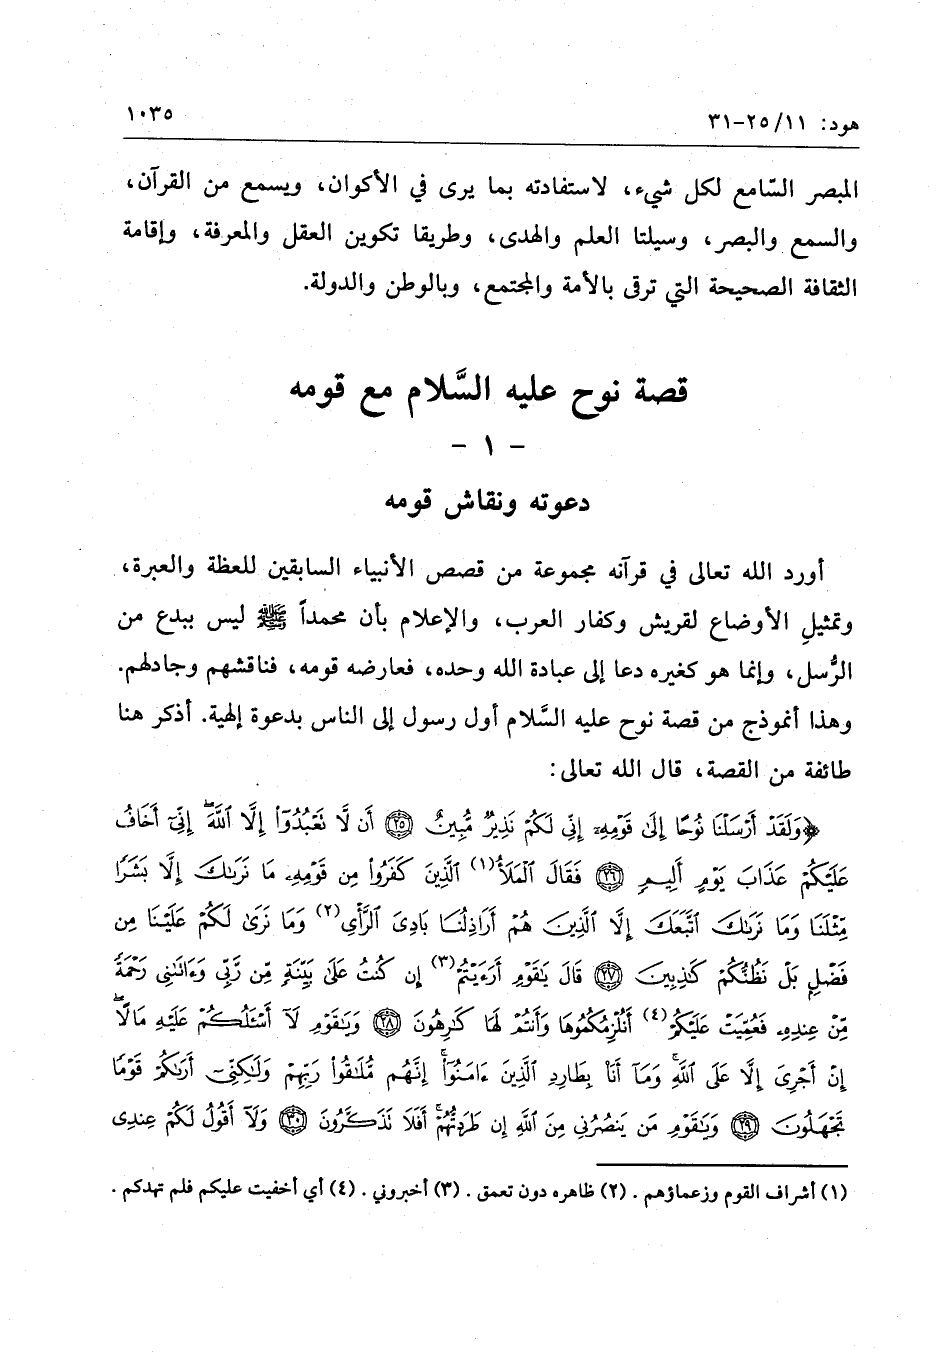 هود: ١١/ ٢٥-٣١ ١٠٣٥
المبصر السّامع لكل شيء، لاستفادته بما يرى في الأكوان، ويسمع من القرآن،
والسمع والبصر، وسيلتا العلم والهدى، وطريقا تكوين العقل والمعرفة، وإقامة
الثقافة الصحيحة التي ترقى بالأمة والمجتمع، وبالوطن والدولة.
قصة نوح عليه السَّلام مع قومه
- ١ -
دعوته ونقاش قومه
أورد الله تعالى في قرآنه مجموعة من قصص الأنبياء السابقين للعظة والعبرة،
وتمثيلِ الأوضاع لقريش وكفار العرب، والإعلام بأن محمداً ﷺ ليس ببدع من
الرُّسل، وإنما هو كغيره دعا إلى عبادة الله وحده، فعارضه قومه، فناقشهم وجادلهم.
وهذا أنموذج من قصة نوح عليه السَّلام أول رسول إلى الناس بدعوة إلهية. أذكر هنا
طائفة من القصة، قال الله تعالى:
﴿وَلَقَدْ أَرْسَلْنَا نُوحًا إِلَىٰ قَوْمِهِۦٓ إِنِّى لَكُمْ نَذِيرٌ مُّبِينٌ ۝٢٥ أَن لَّا نَعْبُدُوٓا۟ إِلَّا ٱللَّهَ ۖ إِنِّىٓ أَخَافُ
عَلَيْكُمْ عَذَابَ يَوْمٍ أَلِيمٍ ۝٢٦ فَقَالَ ٱلْمَلَأُ(١) ٱلَّذِينَ كَفَرُوا۟ مِن قَوْمِهِۦ مَا نَرَىٰكَ إِلَّا بَشَرًا
مِّثْلَنَا وَمَا نَرَىٰكَ ٱتَّبَعَكَ إِلَّا ٱلَّذِينَ هُمْ أَرَاذِلُنَا بَادِىَ ٱلرَّأْىِ(٢) وَمَا نَرَىٰ لَكُمْ عَلَيْنَا مِن
فَضْلٍ بَلْ نَظُنُّكُمْ كَٰذِبِينَ ۝٢٧ قَالَ يَٰقَوْمِ أَرَءَيْتُمْ(٣) إِن كُنتُ عَلَىٰ بَيِّنَةٍ مِّن رَّبِّى وَءَاتَىٰنِى رَحْمَةً
مِّنْ عِندِهِۦ فَعُمِّيَتْ عَلَيْكُمْ(٤) أَنُلْزِمُكُمُوهَا وَأَنتُمْ لَهَا كَٰرِهُونَ ۝٢٨ وَيَٰقَوْمِ لَآ أَسْـَٔلُكُمْ عَلَيْهِ مَالًا ۖ
إِنْ أَجْرِىَ إِلَّا عَلَى ٱللَّهِ ۚ وَمَآ أَنَا۠ بِطَارِدِ ٱلَّذِينَ ءَامَنُوٓا۟ ۚ إِنَّهُم مُّلَٰقُوا۟ رَبِّهِمْ وَلَٰكِنِّىٓ أَرَىٰكُمْ قَوْمًا
تَجْهَلُونَ ۝٢٩ وَيَٰقَوْمِ مَن يَنصُرُنِى مِنَ ٱللَّهِ إِن طَرَدتُّهُمْ ۚ أَفَلَا نَذَكَّرُونَ ۝٣٠ وَلَآ أَقُولُ لَكُمْ عِندِى
(١) أشراف القوم وزعماؤهم . (٢) ظاهره دون تعمق . (٣) أخبروني . (٤) أي أخفيت عليكم فلم تهدكم .